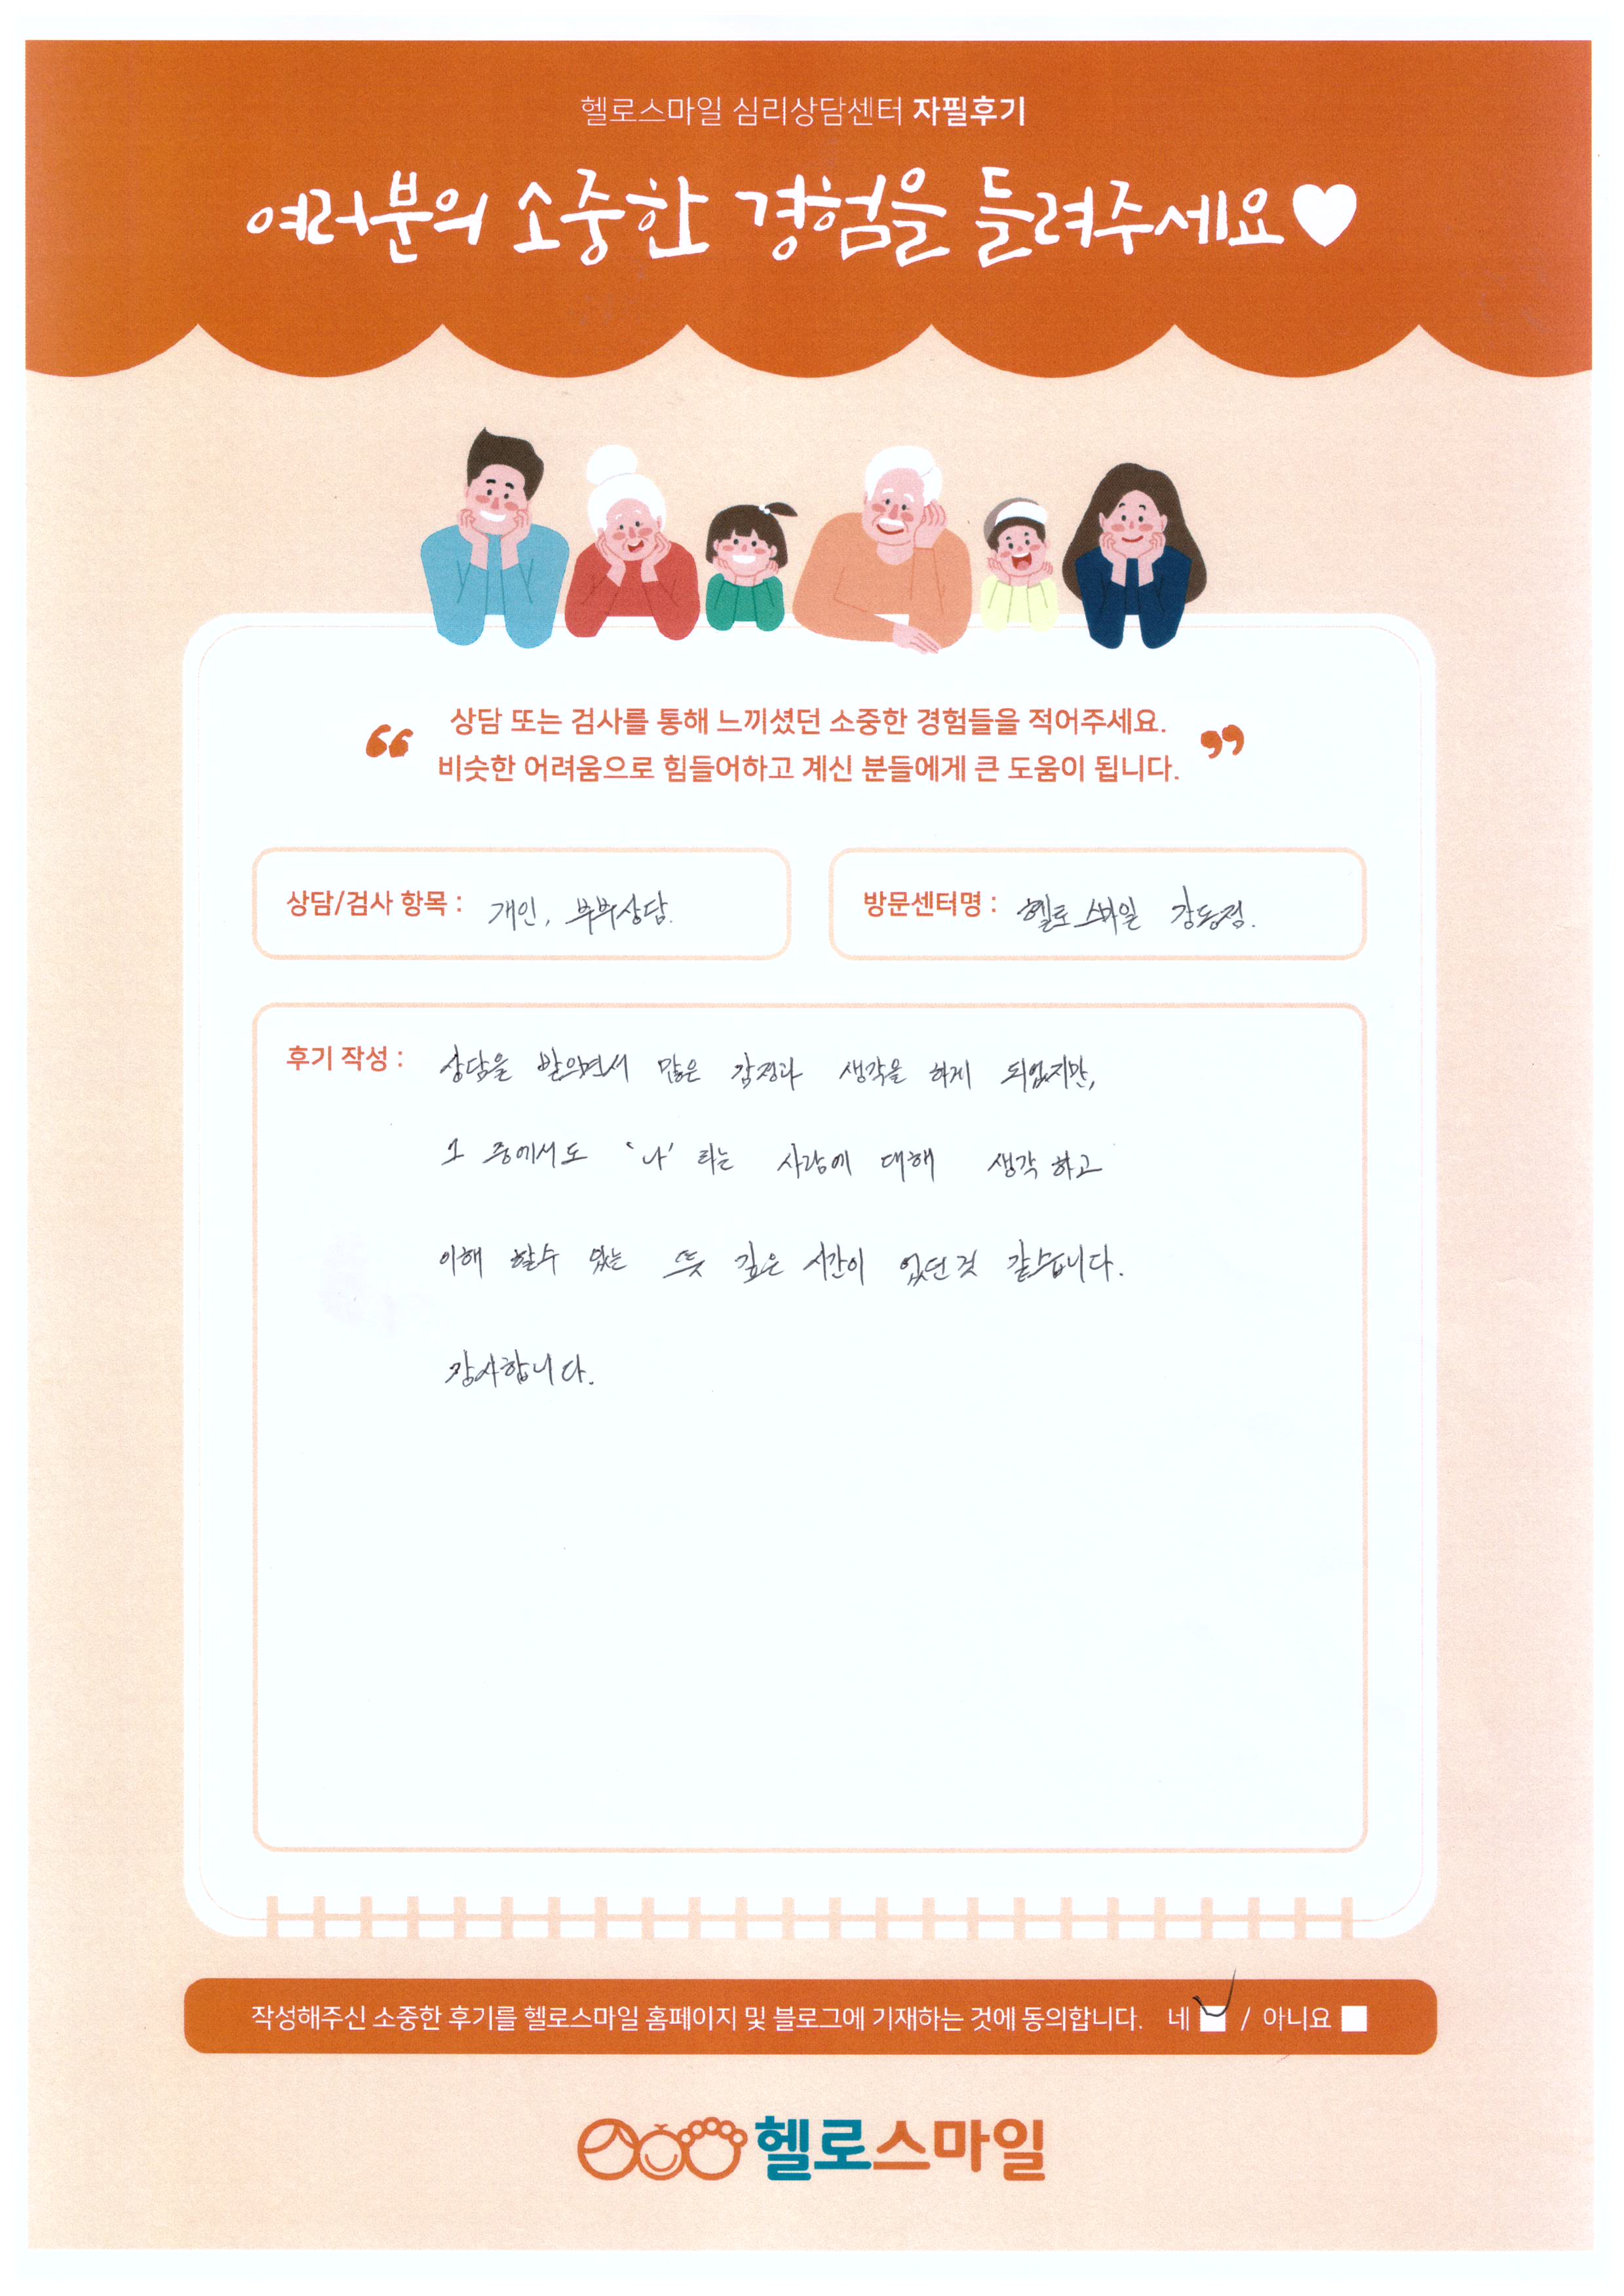 헬로스마일 심리상담센터 자필후기
여러분의 소중한 경험을 들려주세요♥
상담 또는 검사를 통해 느끼셨던 소중한 경험들을 적어주세요.
“ ”
비슷한 어려움으로 힘들어하고 계신 분들에게 큰 도움이 됩니다.
상담/검사 항목 : 개인, 부부상담. 방문센터명 : 헬로스마일 강동점.
후기 작성 : 상담을 받으면서 많은 감정과 생각을 하게 되었지만,
그 중에서도 '나' 라는 사람에 대해 생각하고
이해 할수 있는 뜻 깊은 시간이 었던것 같습니다.
감사합니다.
작성해주신 소중한 후기를 헬로스마일 홈페이지 및 블로그에 기재하는 것에 동의합니다. 네 / 아니요
헬로스마일